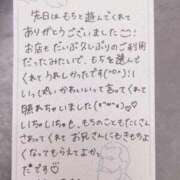 先日はもちと遊んでくれて
ありがとうございました
お店もだいぶ久しぶりのご利用
だったみたいで、もちを選んで
くれてうれしかったです(^o^)!
いっしょにかわいいって言ってくれて
照れちゃいました(*°▽°*)
いちゃいちゃも、もちのこともたくさん
さわってくれてお兄さんもきもちよ
くなってもらえてよかった
です♡